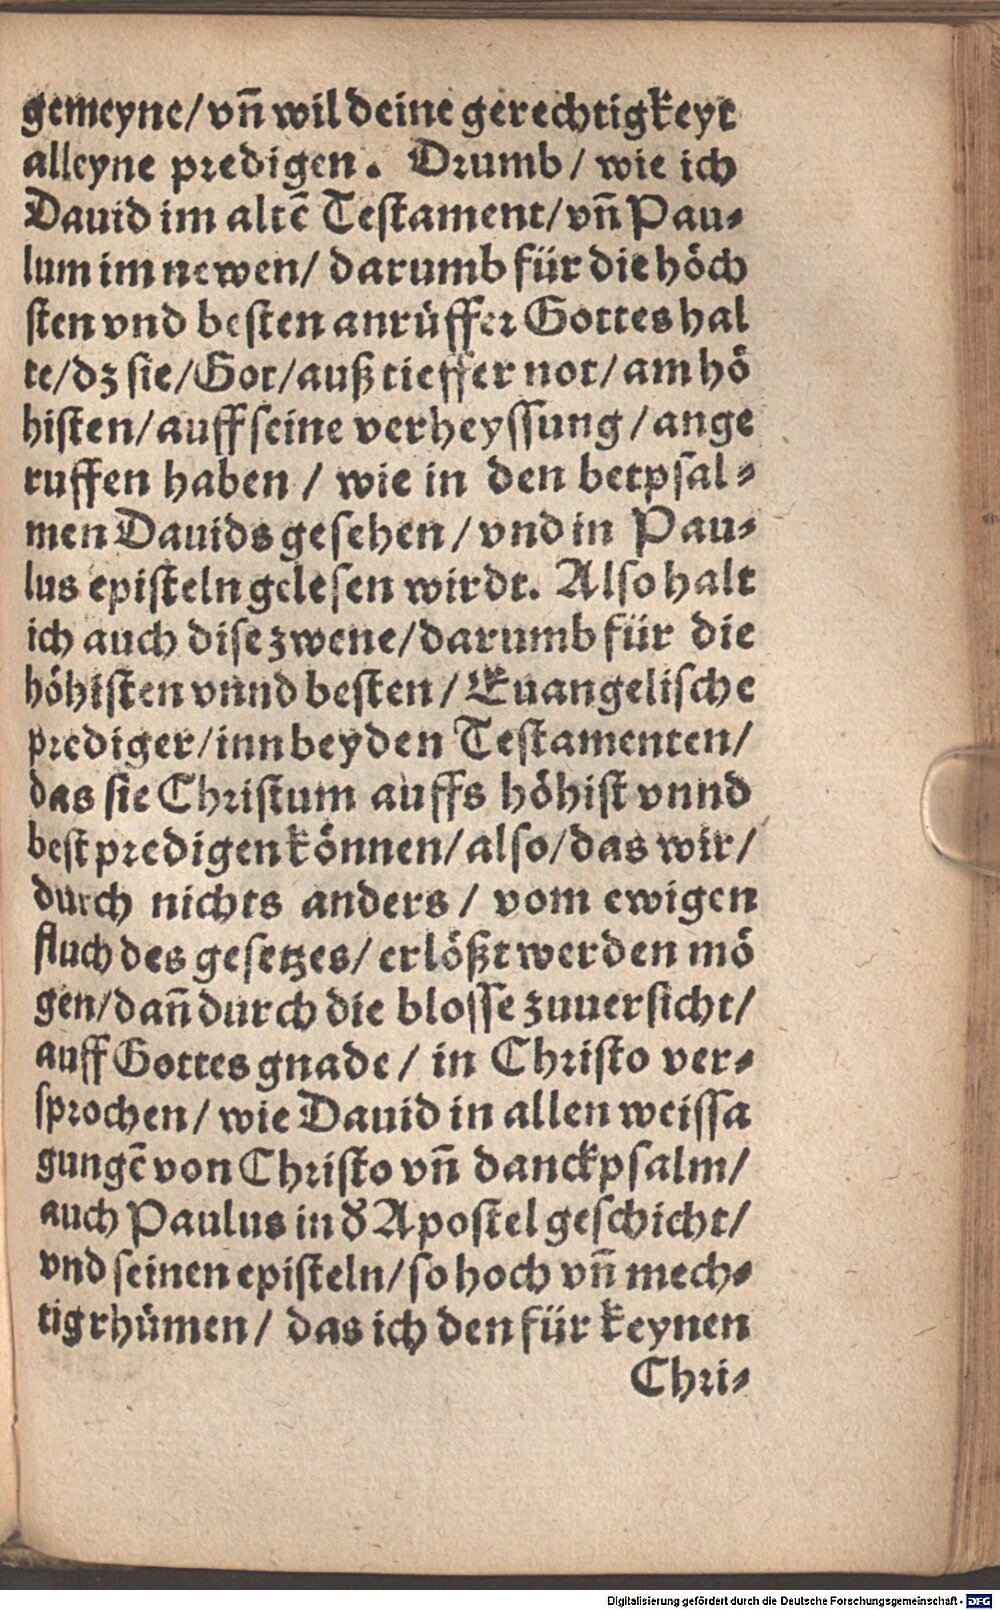 gemeyne/vñ wil deine gerechtigkeyt
alleyne predigen. Drumb/ wie ich
Dauid im altē Testament/vñ Pau-
lum im newen/ darumb für die höch
sten vnd besten anrüffer Gottes hal
te/dz sie/Got/auß tieffer not/am hö
histen/auff seine verheyssung/ange
ruffen haben / wie in den betpsal-
men Dauids gesehen/vnd in Pau-
lus episteln gelesen wirdt. Also halt
ich auch dise zwene/darumb für die
höhisten vnnd besten/ Euangelische
prediger/inn beyden Testamenten/
das sie Christum auffs höhist vnnd
best predigen können/also/das wir/
durch nichts anders/ vom ewigen
fluch des gesetzes/ erlößt werden mö
gen/dañ durch die blosse zuuersicht/
auff Gottes gnade/ in Christo ver-
sprochen/ wie Dauid in allen weissa
gungē von Christo vñ danckpsalm/
auch Paulus in d̕ Apostel geschicht/
vnd seinen episteln/so hoch vñ mech-
tig rhümen/ das ich den für keynen
Chri-
Digitalisierung gefördert durch die Deutsche Forschungsgemeinschaft - DFG